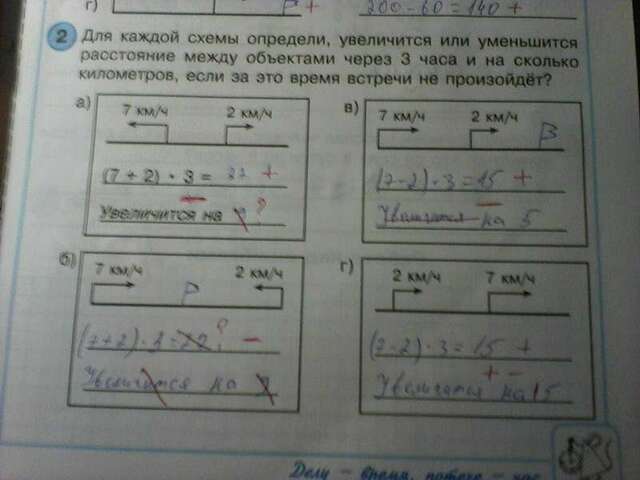 г)
P +
200 - 60 = 140 +
2 Для каждой схемы определи, увеличится или уменьшится
расстояние между объектами через 3 часа и на сколько
километров, если за это время встречи не произойдёт?
а)
7 км/ч 2 км/ч
(7 + 2) • 3 = 27 +
Увеличится на ?
в)
7 км/ч 2 км/ч
В
(7-2)·3=15 +
Увеличится на 5
б)
7 км/ч 2 км/ч
P
(7+2)·3= ? -
Увеличится на
г)
2 км/ч 7 км/ч
(7-2)·3=15 +
+ -
Увеличится на 15
Делу – время, потехе – час